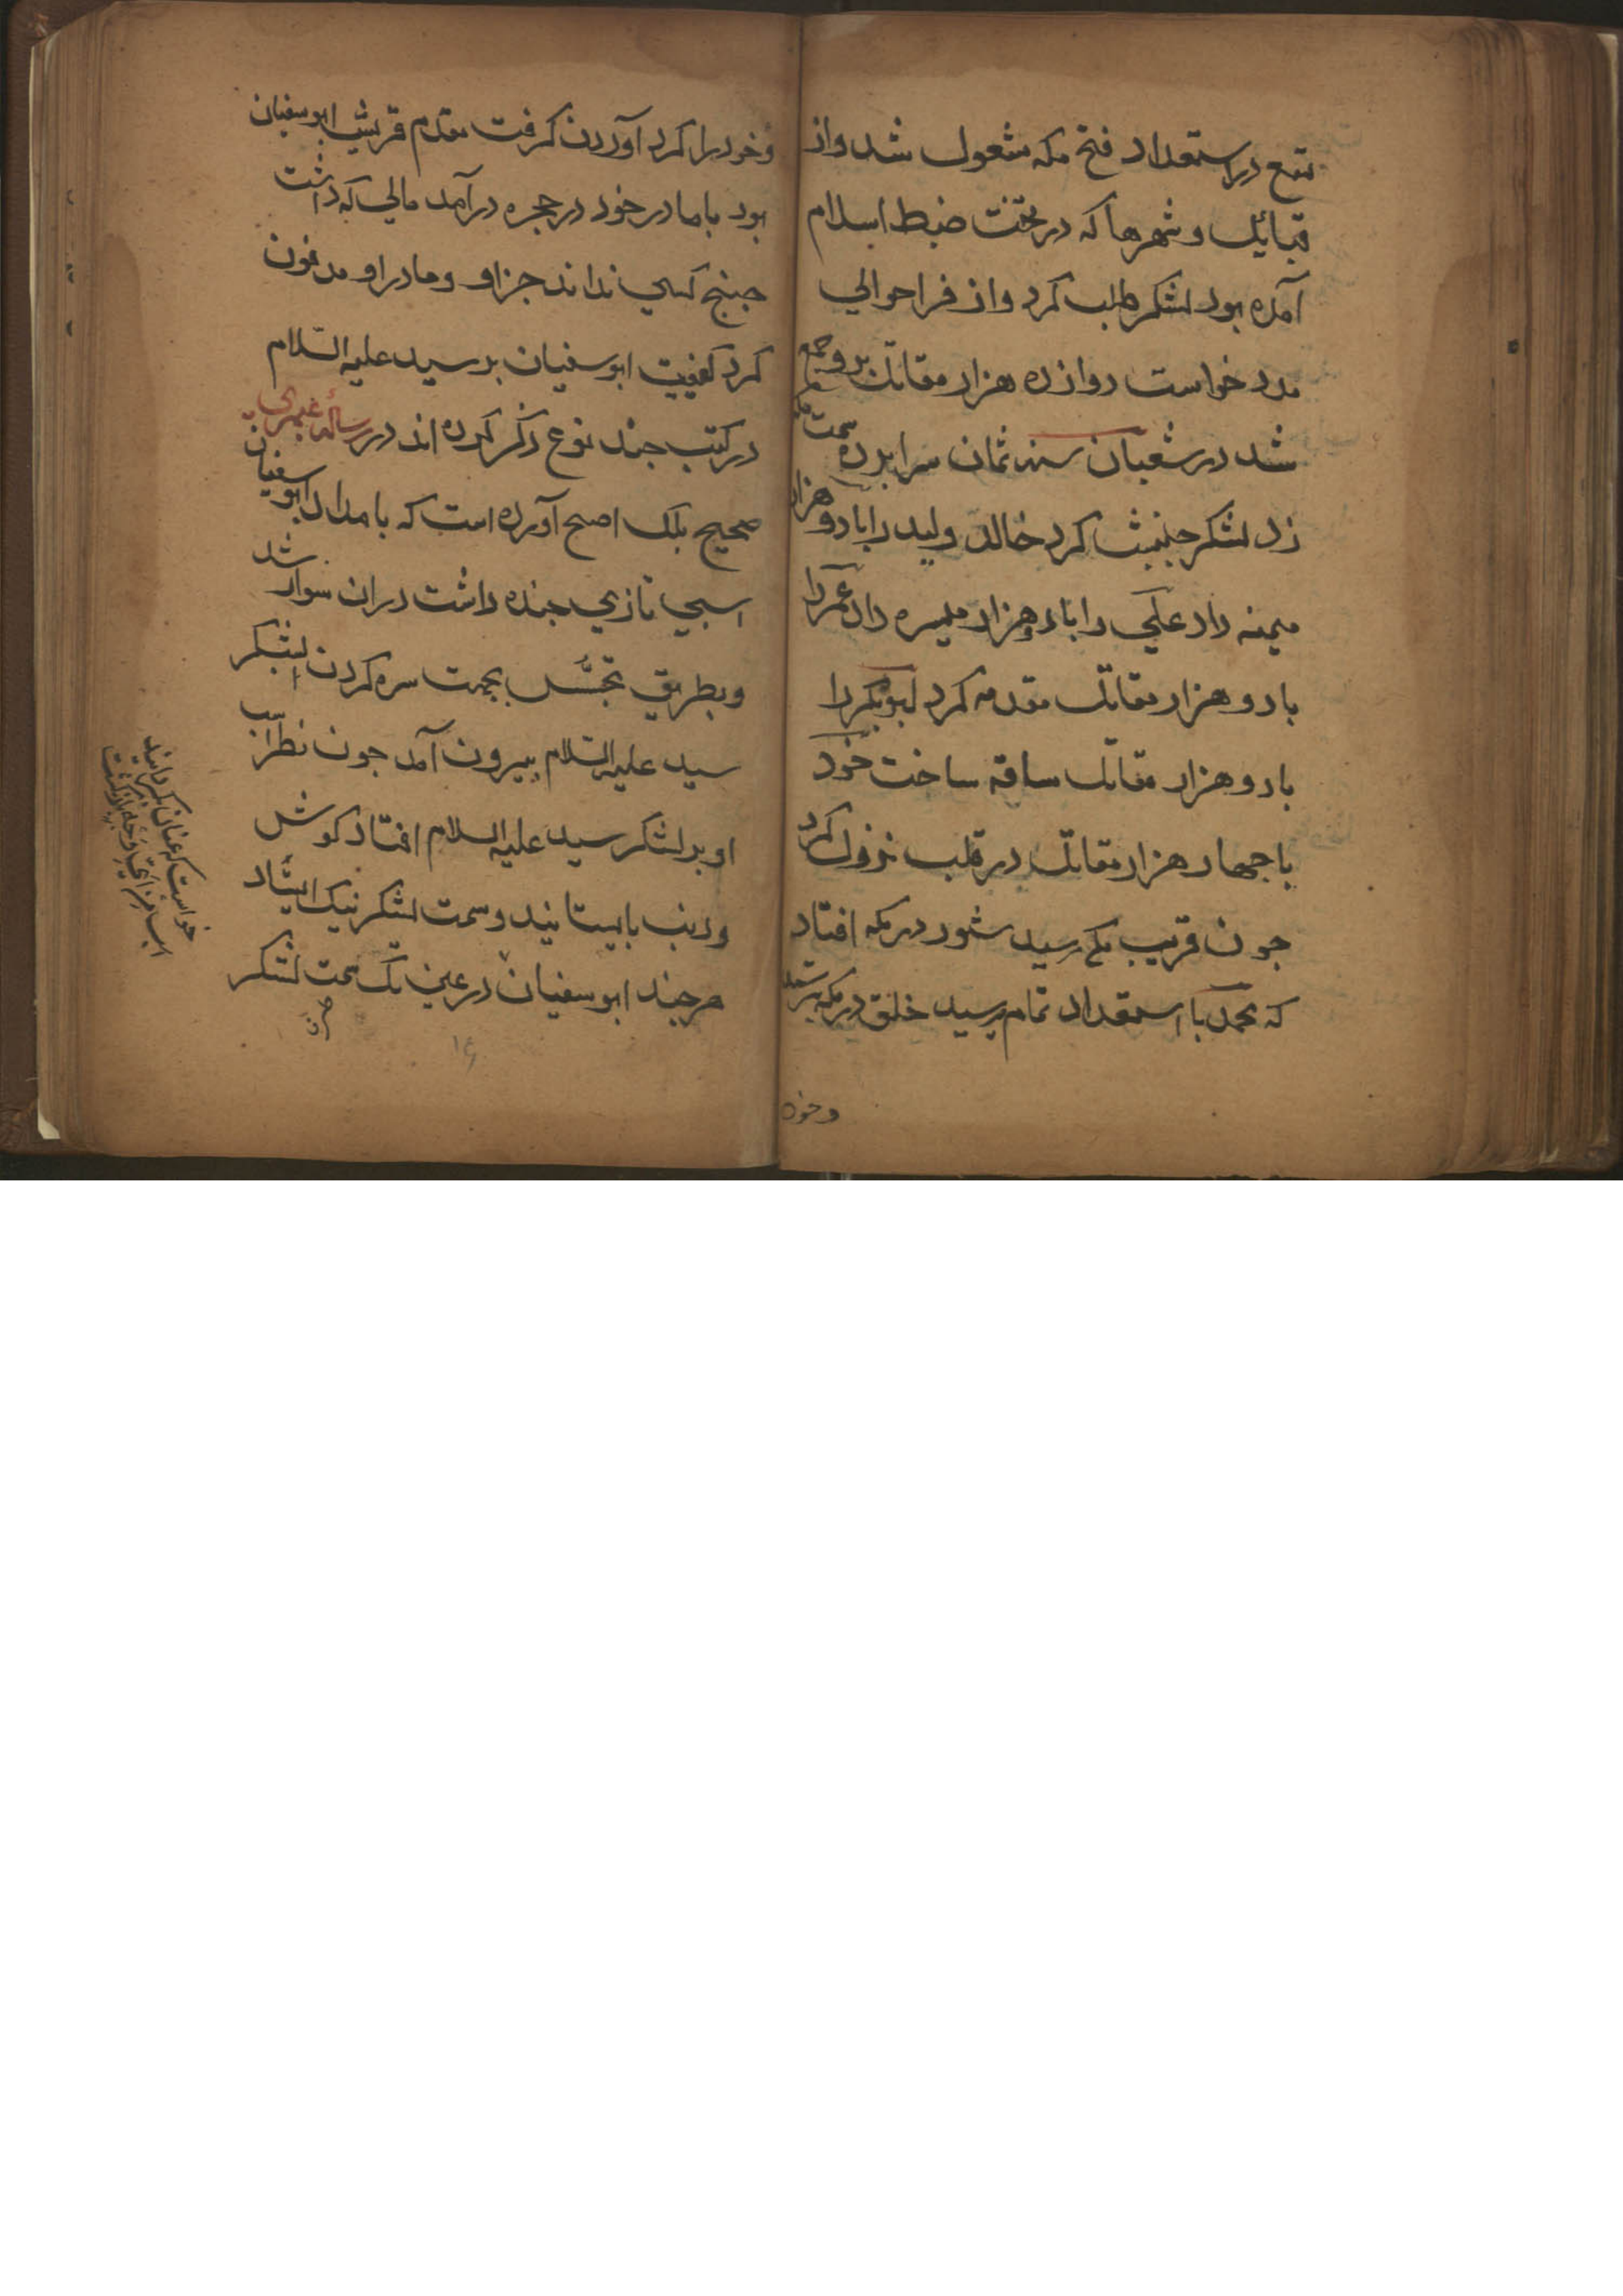 تتبع در استعداد فتح مکه مشغول شد و از
قبائل و شهرها که در تحت ضبط اسلام
آمده بود لشکر طلب کرد و از فراحوالی
مدد خواست دوازده هزار مقاتل برو جمع
شد در شعبان سنه ثمان سرابرده سمت مکه
زد لشکر جنبش کرد خالد ولید را با دو هزار
میمنه داد علی را با دو هزار میسره داد عمر را
با دو هزار مقاتل مقدمه کرد ابوبکر را
با دو هزار مقاتل ساقه ساخت خود
با جهار هزار مقاتل در قلب نزول کرد
جون قریب مکه رسید شور در مکه افتاد
که محمد با استعداد تمام رسید خلق در مکه بترسید
وخود
و خود را کرد آوردن کرفت مقدم قریش ابو سفیان
بود با مادر خود در حجره درآمد مالی که داشت
جنانج کسی نداند جز او و مادر او مدفون
کرد کیفیت ابو سفیان بر سید علیه السلام
در کتب جند نوع ذکر کرده اند در رساله
صحیح بلک اصح آورده است که بامداد ابو سفیان
اسبی تازی جنده داشت دران سوار شد
و بطریق تجسس بجهت سره کردن لشکر
سید علیه السلام بیرون آمد جون نظر اسب
او بر لشکر سید علیه السلام افتاد کوش
و دنب بایستانید و سمت لشکر نیک ایستاد
هرجند ابو سفیان در عین تک سمت لشکر
خواست که عنان بکرداند
اسب